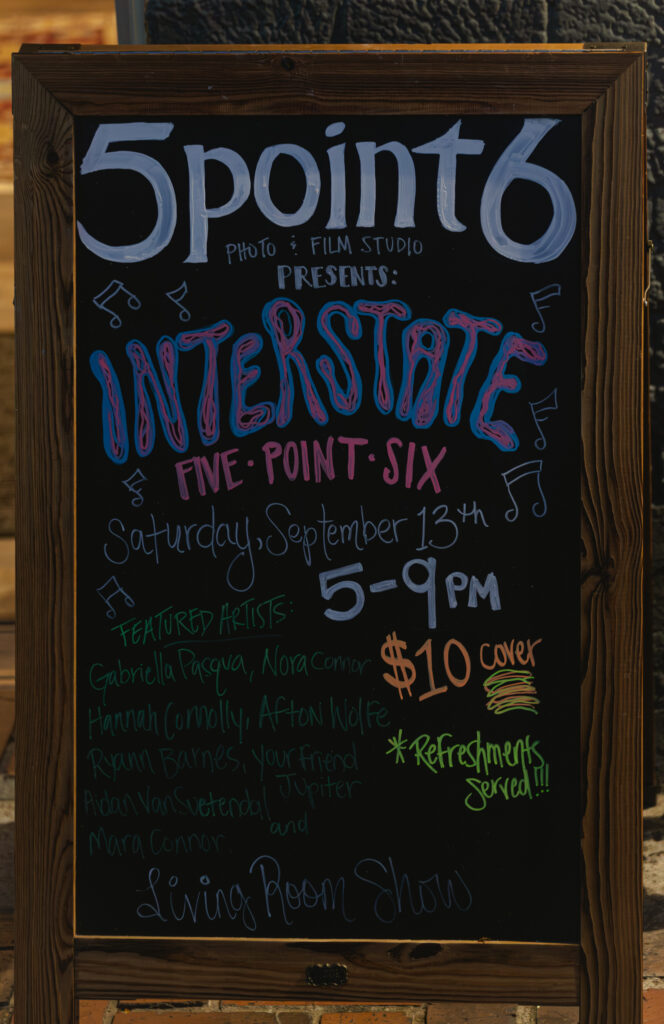 5point6
PHOTO & FILM STUDIO
PRESENTS:
INTERSTATE
FIVE·POINT·SIX
Saturday, September 13th
5-9PM
FEATURED ARTISTS:
Gabriella Pasqua, Nora Connor
Hannah Connolly, Afton Wolfe
Ryann Barnes, your friend
Jupiter
Aidan VanSuetendal
and
Mara Connor
$10 cover
*Refreshments
Served!!!
Living Room Show